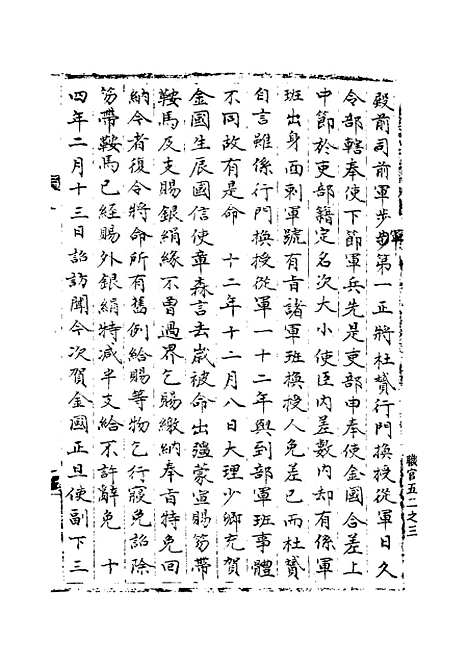 殿前司前軍步步第一正將杜贇行門換授從軍日久
令部轄奉使下節軍兵先是吏部申奉使金國合差上
中節於吏部籍定名次大小使臣內差數內却有係軍
班出身面刺軍號有肯諸軍班換授人免差已而杜贇
自言雖係行門換授從軍一十二年與到部軍班事體
不同故有是命　十二年十二月八日大理少卿充賀
金國生辰國信使章森言去歲被命出疆蒙宣賜笏帶
鞍馬及支賜銀絹緣不曾過界乞賜繳納奉肯特免回
納令者復令將命所有舊例給賜等物乞行寢免詔除
笏帶鞍馬已經賜外銀絹特減半支給不許辭免　十
四年二月十三日詔訪聞今次賀金國正旦使副下三
職官五二之三